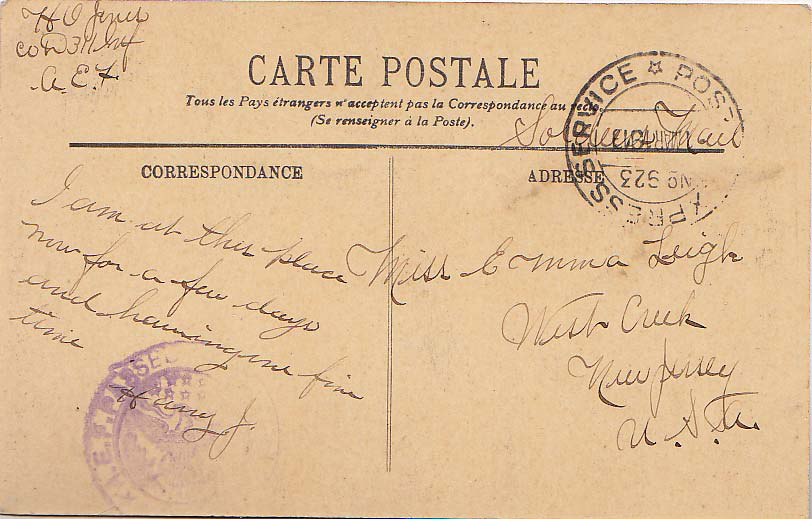 H O Jones
Co D 311 Inf
A.E.F
CARTE POSTALE
Tous les Pays étrangers n'acceptent pas la Correspondance au recto.
(Se renseigner à la Poste).
Soldiers Mail
POST EXPRESS SERVICE
No 923
CORRESPONDANCE
ADRESSE
I am at this place
now for a few days
and having one fine
time
Harry J.
Miss Emma Leigh
West Creek
New Jersey
U.S.A.
A.E.F. PASSED